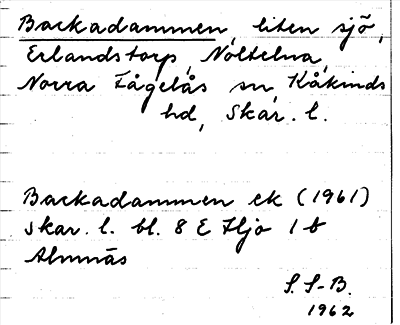 Backadammen, liten sjö,
Erlandstorp, Noltelna,
Norra Fågelås sn, Kåkinds
hd, Skar. l.
Backadammen ek (1961)
Skar. l. bl. 8 E Hjo 1 b
Almnäs
S. S-B.
1962